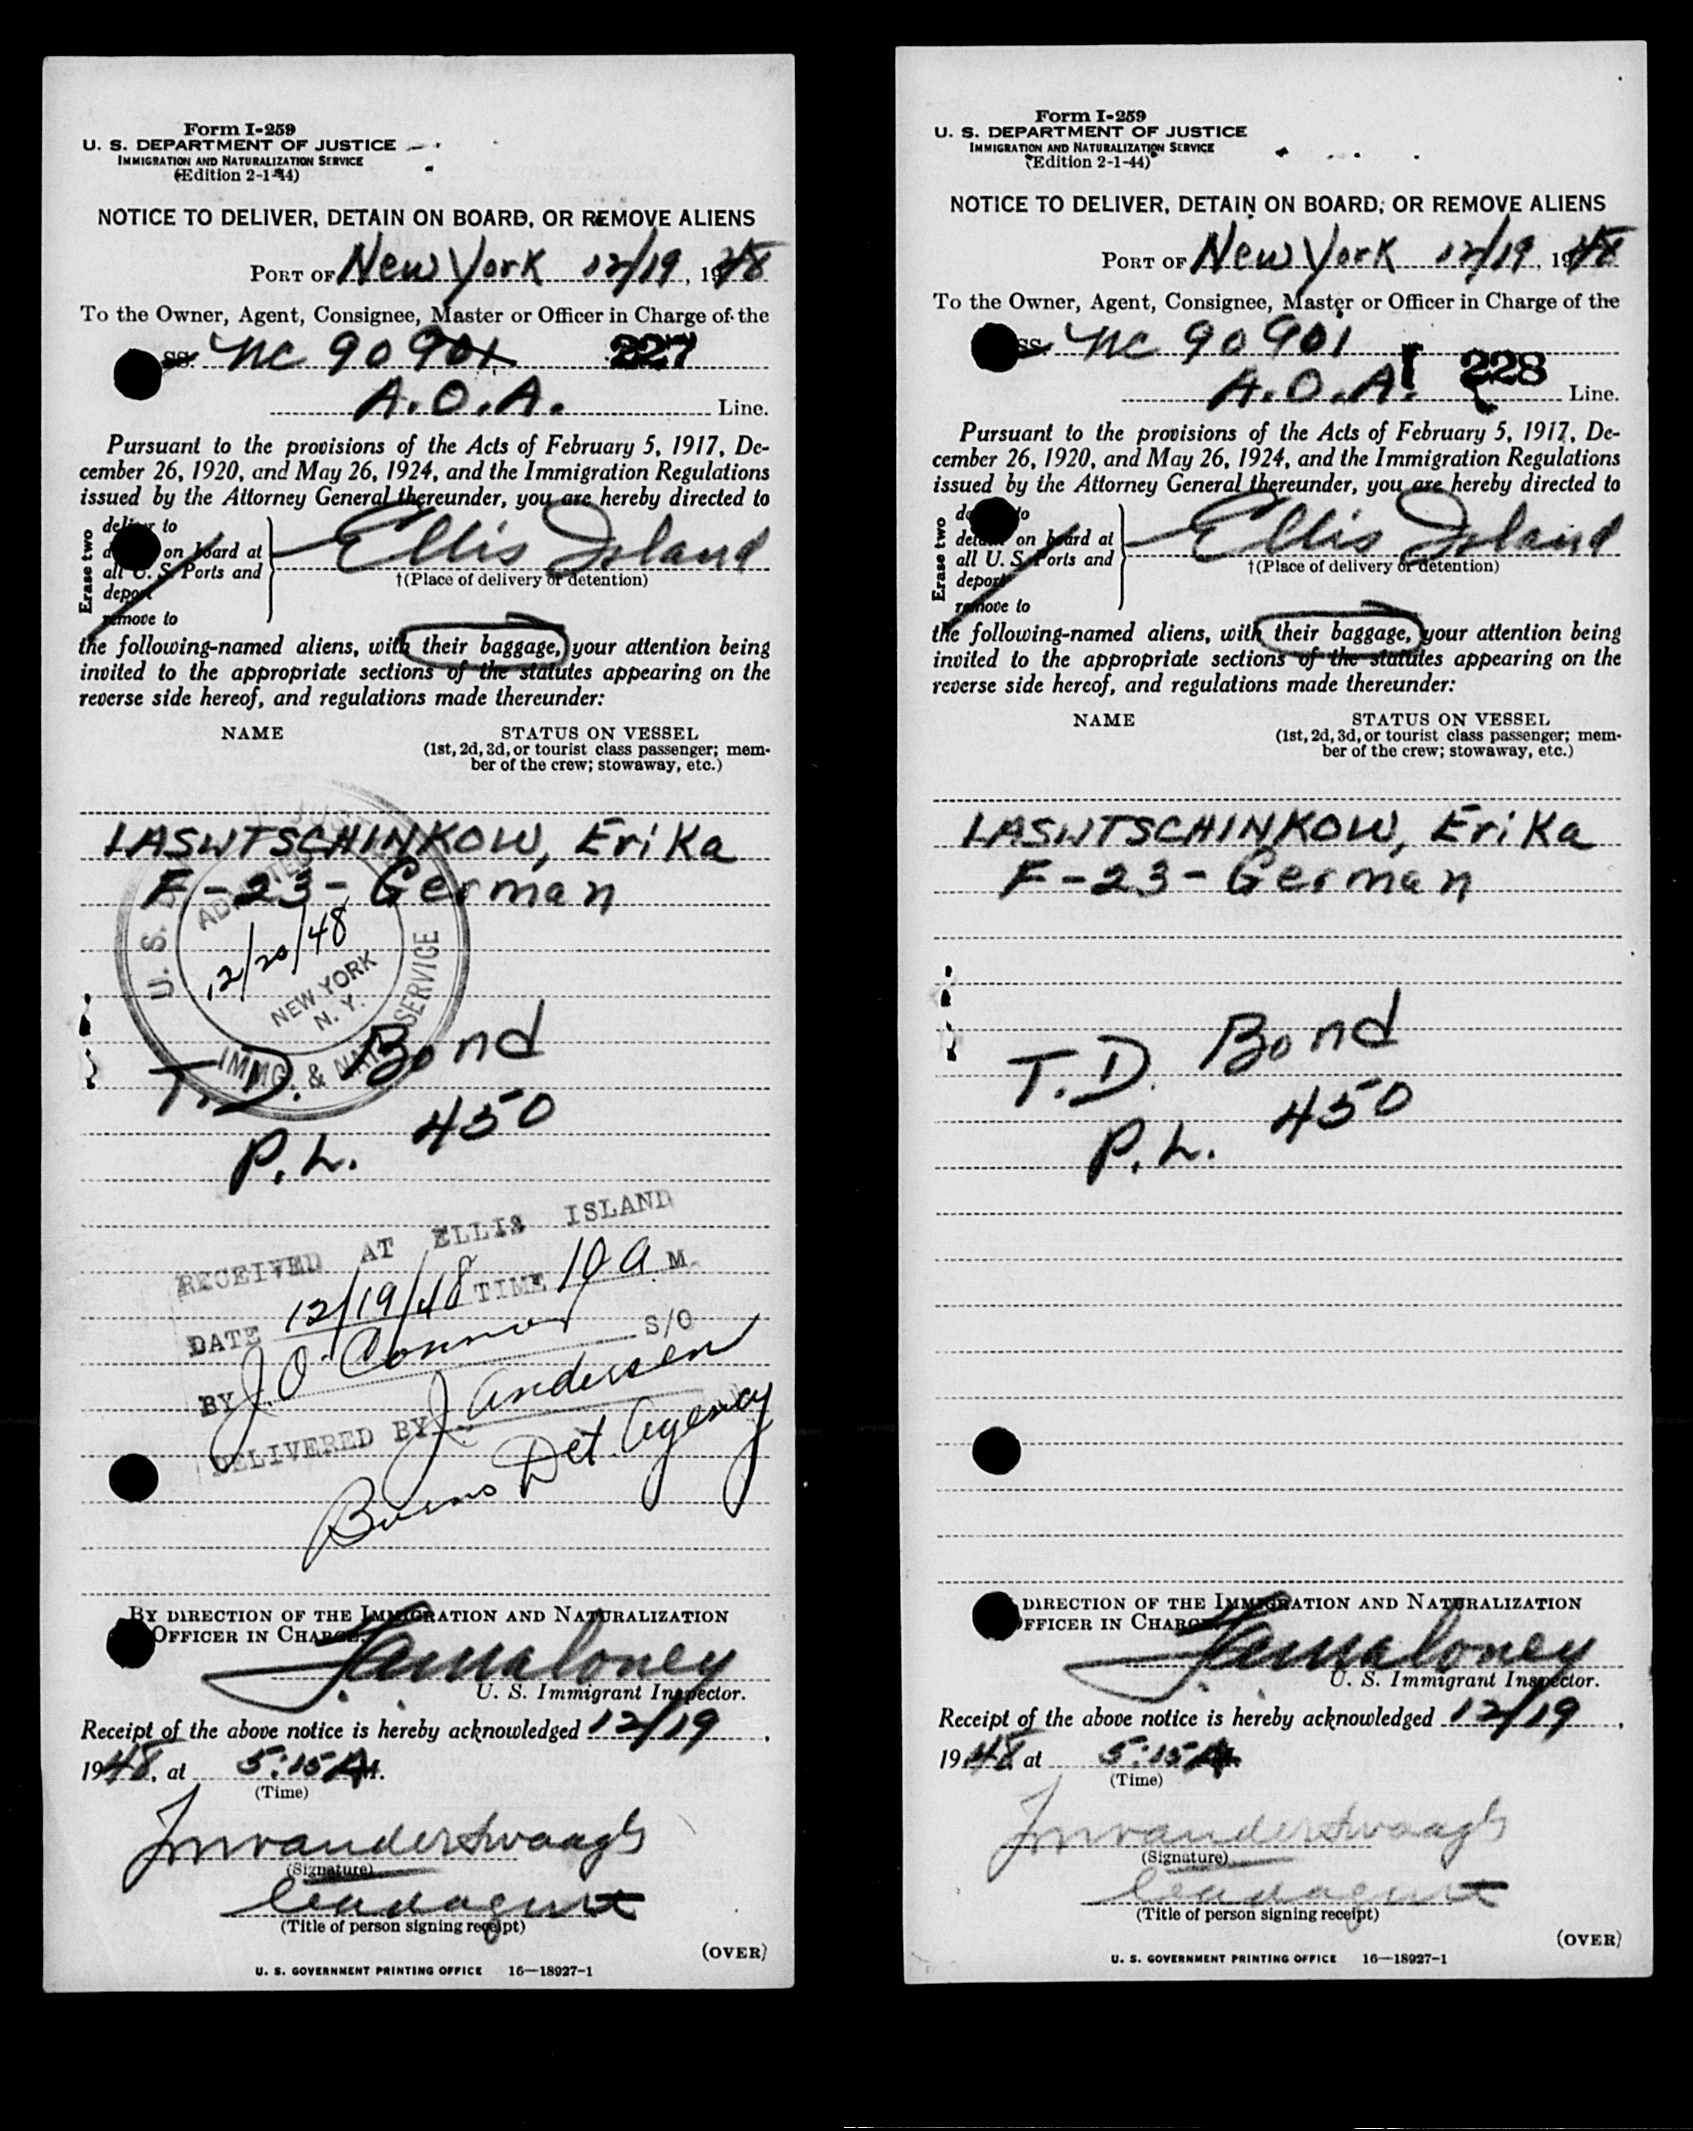 Form I-259
U. S. DEPARTMENT OF JUSTICE
IMMIGRATION AND NATURALIZATION SERVICE
(Edition 2-1-44)
NOTICE TO DELIVER, DETAIN ON BOARD, OR REMOVE ALIENS
PORT OF New York 12/19, 1948
To the Owner, Agent, Consignee, Master or Officer in Charge of the
SS. NC 90901 227
A.O.A. Line.
Pursuant to the provisions of the Acts of February 5, 1917, De-
cember 26, 1920, and May 26, 1924, and the Immigration Regulations
issued by the Attorney General thereunder, you are hereby directed to
Erase two
deliver to
on board at
all U. S. Ports and
deport
remove to
Ellis Island
†(Place of delivery or detention)
the following-named aliens, with their baggage, your attention being
invited to the appropriate sections of the statutes appearing on the
reverse side hereof, and regulations made thereunder:
NAME STATUS ON VESSEL
(1st, 2d, 3d, or tourist class passenger; mem-
ber of the crew; stowaway, etc.)
LASWTSCHINKOW, Erika
F-23-German
U. S. IMMIG. & NATZ. SERVICE
ADMITTED
12/20/48
NEW YORK
N. Y.
T.D. Bond
P.L. 450
RECEIVED AT ELLIS ISLAND
DATE 12/19/48 TIME 10 A M.
BY J. O'Connor S/O
DELIVERED BY J. Andersen
Burns Det. Agency
BY DIRECTION OF THE IMMIGRATION AND NATURALIZATION
OFFICER IN CHARGE.
J.A. Maloney
U. S. Immigrant Inspector.
Receipt of the above notice is hereby acknowledged 12/19,
1948, at 5:15 AM.
(Time)
(Signature)
(Title of person signing receipt)
(OVER)
U. S. GOVERNMENT PRINTING OFFICE 16—18927-1
Form I-259
U. S. DEPARTMENT OF JUSTICE
IMMIGRATION AND NATURALIZATION SERVICE
(Edition 2-1-44)
NOTICE TO DELIVER, DETAIN ON BOARD, OR REMOVE ALIENS
PORT OF New York 12/19, 1948
To the Owner, Agent, Consignee, Master or Officer in Charge of the
SS. NC 90901
A.O.A. 228 Line.
Pursuant to the provisions of the Acts of February 5, 1917, De-
cember 26, 1920, and May 26, 1924, and the Immigration Regulations
issued by the Attorney General thereunder, you are hereby directed to
Erase two
to
detain on board at
all U. S. Ports and
deport
remove to
Ellis Island
†(Place of delivery or detention)
the following-named aliens, with their baggage, your attention being
invited to the appropriate sections of the statutes appearing on the
reverse side hereof, and regulations made thereunder:
NAME STATUS ON VESSEL
(1st, 2d, 3d, or tourist class passenger; mem-
ber of the crew; stowaway, etc.)
LASWTSCHINKOW, Erika
F-23-German
T.D. Bond
P.L. 450
DIRECTION OF THE IMMIGRATION AND NATURALIZATION
OFFICER IN CHARGE.
J.A. Maloney
U. S. Immigrant Inspector.
Receipt of the above notice is hereby acknowledged 12/19,
1948, at 5:15 AM.
(Time)
(Signature)
(Title of person signing receipt)
(OVER)
U. S. GOVERNMENT PRINTING OFFICE 16—18927-1